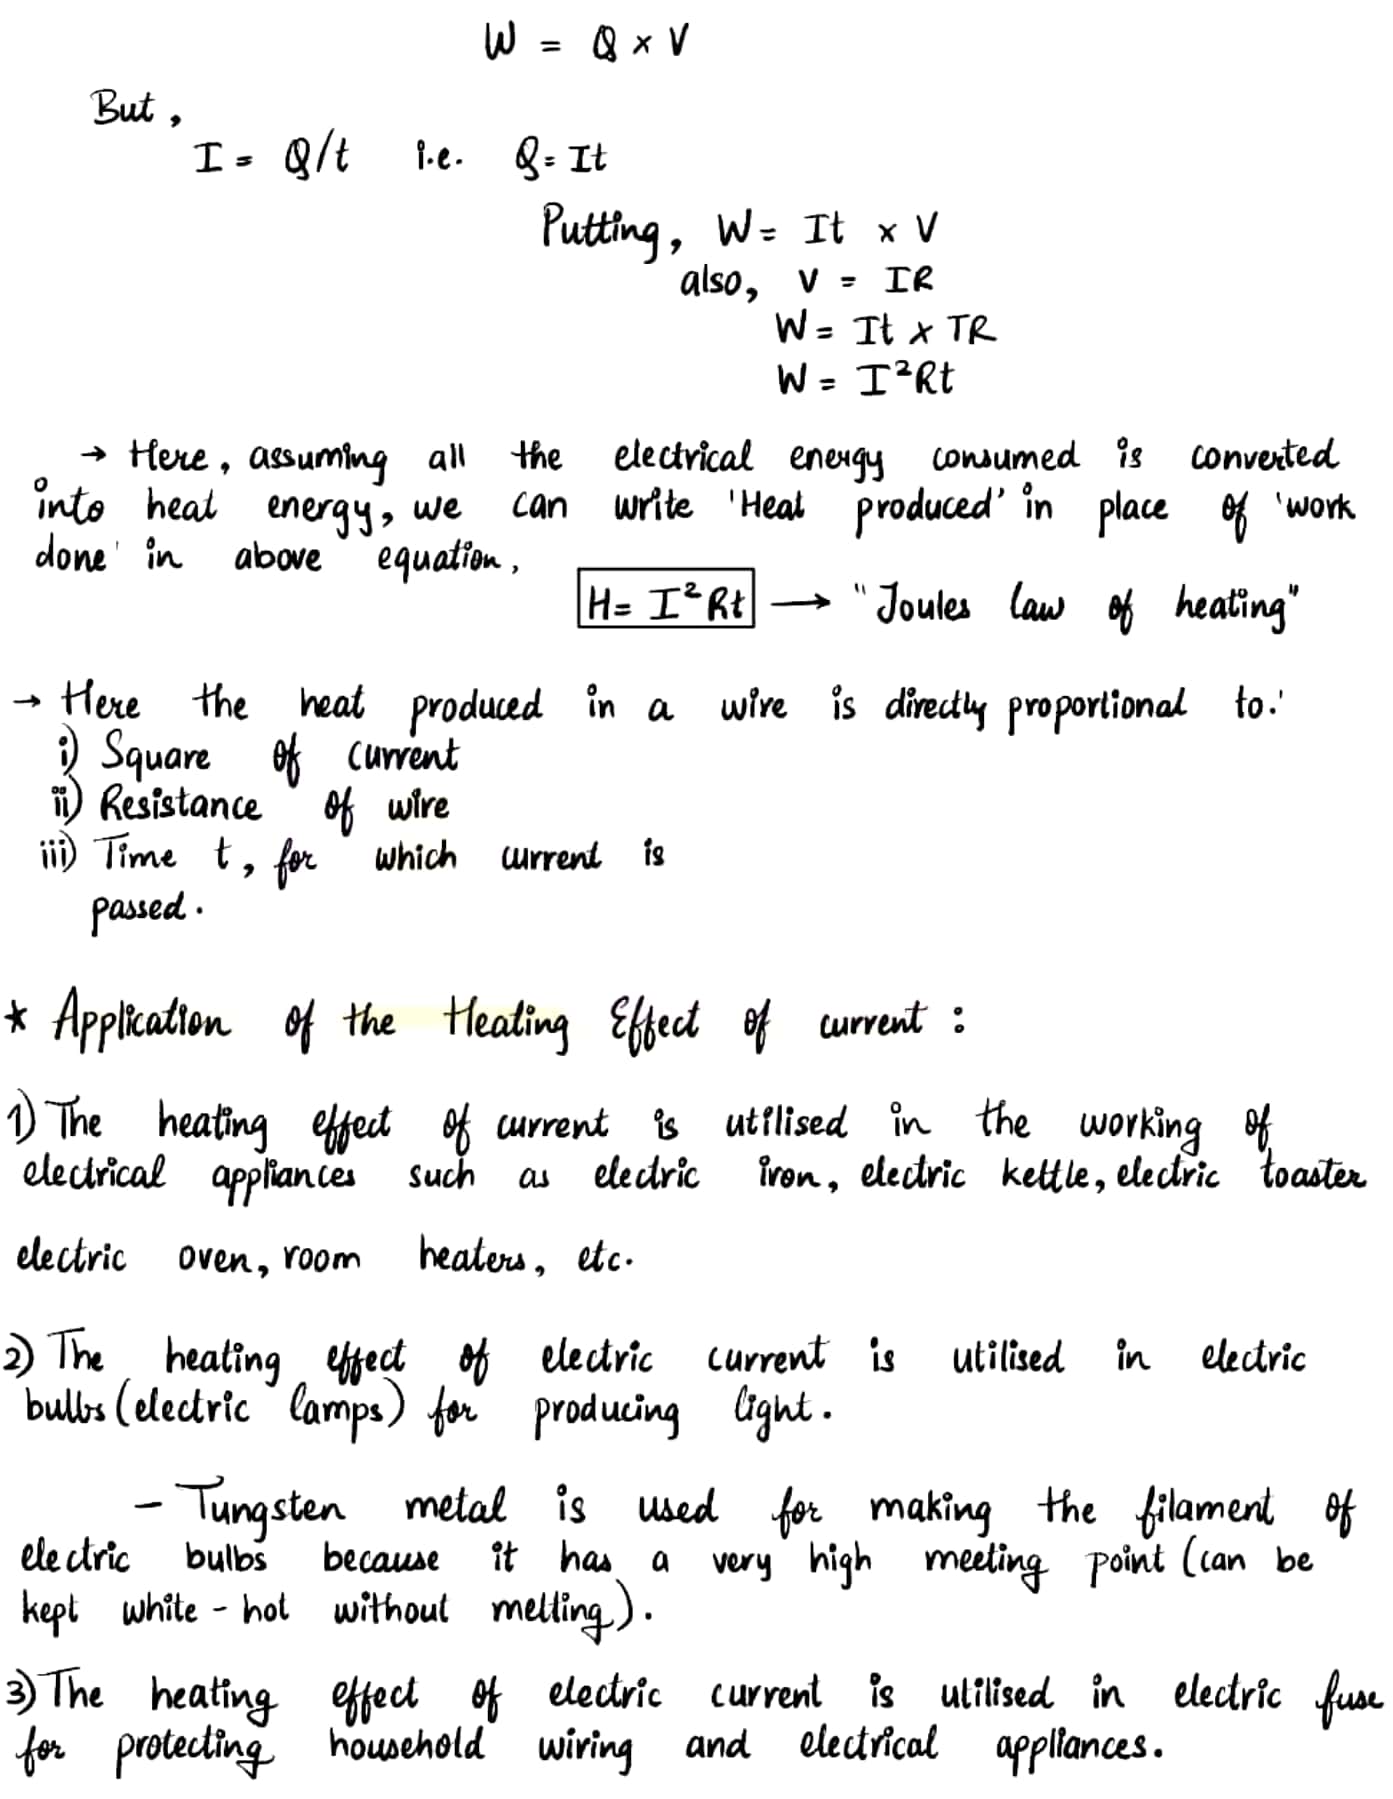 W = Q × V
But,
I = Q/t i.e. Q = It
Putting, W = It × V
also, V = IR
W = It × TR
W = I²Rt
→ Here, assuming all the electrical energy consumed is converted
into heat energy, we can write 'Heat produced' in place of 'work
done' in above equation,
H = I²Rt → "Joules law of heating"
→ Here the heat produced in a wire is directly proportional to:
i) Square of current
ii) Resistance of wire
iii) Time t, for which current is
passed.
* Application of the Heating Effect of current :
1) The heating effect of current is utilised in the working of
electrical appliances such as electric iron, electric kettle, electric toaster
electric oven, room heaters, etc.
2) The heating effect of electric current is utilised in electric
bulbs (electric lamps) for producing light.
- Tungsten metal is used for making the filament of
electric bulbs because it has a very high meeting point (can be
kept white-hot without melting).
3) The heating effect of electric current is utilised in electric fuse
for protecting household wiring and electrical appliances.